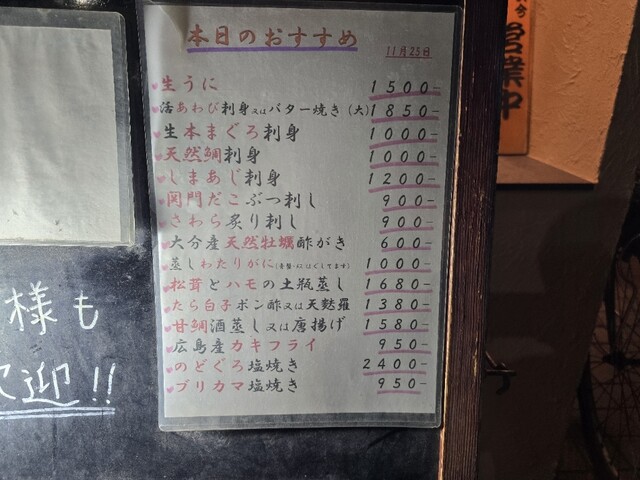 本日のおすすめ
11月25日
生うに 1500-
活あわび刺身又はバター焼き(大) 1850-
生本まぐろ刺身 1000-
天然鯛刺身 1000-
しまあじ刺身 1200-
関門だこぶつ刺し 900-
さわら炙り刺し 900-
大分産天然牡蠣酢がき 600-
蒸しわたりがに 1000-
松茸とハモの土瓶蒸し 1680-
たら白子ポン酢又は天麩羅 1380-
甘鯛酒蒸し又は唐揚げ 1580-
広島産カキフライ 950-
のどぐろ塩焼き 2400-
ブリカマ塩焼き 950-
様も
迎!!
営業中